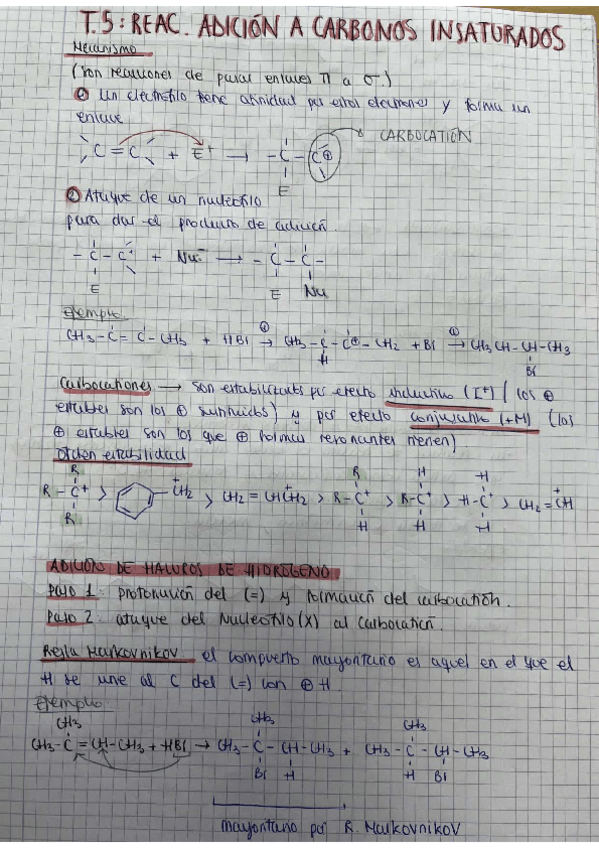 T.5: REAC. ADICIÓN A CARBONOS INSATURADOS
Mecanismo
(son reacciones de pasar enlaces π a σ.)
① Un electrófilo tiene afinidad por estos electrones y forma un
enlace
C = C + E⁺ → -C - C⊕ CARBOCATIÓN
E
② Ataque de un nucleófilo
para dar el producto de adición.
- C - C⁺ + Nu⁻ → - C - C -
E E Nu
Ejemplo:
CH3-C = C-CH3 + HBr ①→ CH3-C-C⊕-CH2 + Br ②→ CH3CH-CH-CH3
H Br
Carbocationes → son estabilizados por efecto inductivo (I⁺) (los ⊕
estables son los ⊕ sustituidos) y por efecto conjugativo (+M) (los
⊕ estables son los que ⊕ formas resonantes tienen)
Orden estabilidad
R R H H
R-C⁺ > ⁺CH2 > CH2=CHCH2⁺ > R-C⁺ > R-C⁺ > H-C⁺ > CH2=CH⁺
R H H H
ADICIÓN DE HALUROS DE HIDRÓGENO
Paso 1: protonación del (=) y formación del carbocatión.
Paso 2: ataque del Nucleófilo (X) al carbocatión.
Regla Markovnikov el compuesto mayoritario es aquel en el que el
H se une al C del (=) con ⊕ H.
Ejemplo
CH3 CH3 CH3
CH3-C=CH-CH3 + HBr → CH3-C-CH-CH3 + CH3-C-CH-CH3
Br H H Br
mayoritario por R. Markovnikov